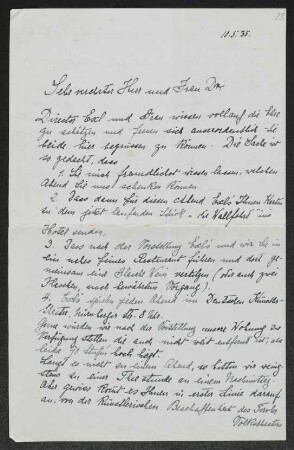 10.5.35.
Sehr verehrter Herr und Frau Dr.
Director Exl und Frau wissen vollauf die Ehre
zu schätzen und freuen sich ausserordentlich Sie
beide hier begruessen zu können. Die Sache ist
so gedacht, dass
1. Sie mich freundlichst wissen lassen, welchen
Abend Sie uns schenken können.
2. Dass dann für diesen Abend Exls Ihnen Karten
zu dem jetzt laufenden Stück - die Wallfahrt ins
Hotel senden.
3. Dass nach der Vorstellung Exls und wir Sie in
ein nahes feines Restaurant führen und dort ge-
meinsam eine Flasche Wein vertilgen (oder auch zwei
Flaschen, nach bewährtem Vorgang).
4. Exls spielen jeden Abend im Deutschen Künstler-
theater, Nürnberger Str. 8 Uhr.
Gern würden wir nach der Vorstellung unsere Wohnung zur
Verfügung stellen die auch nicht weit entfernt ist, aber
leider 75 Stufen hoch liegt.
Langt es nicht zu einem Abend, so bitten wir wenig-
stens zu einer Theestunde an einem Nachmittag.
Aber gewiss kommt es Ihnen in erster Linie darauf
an, von der künstlerischen Beschaffenheit des